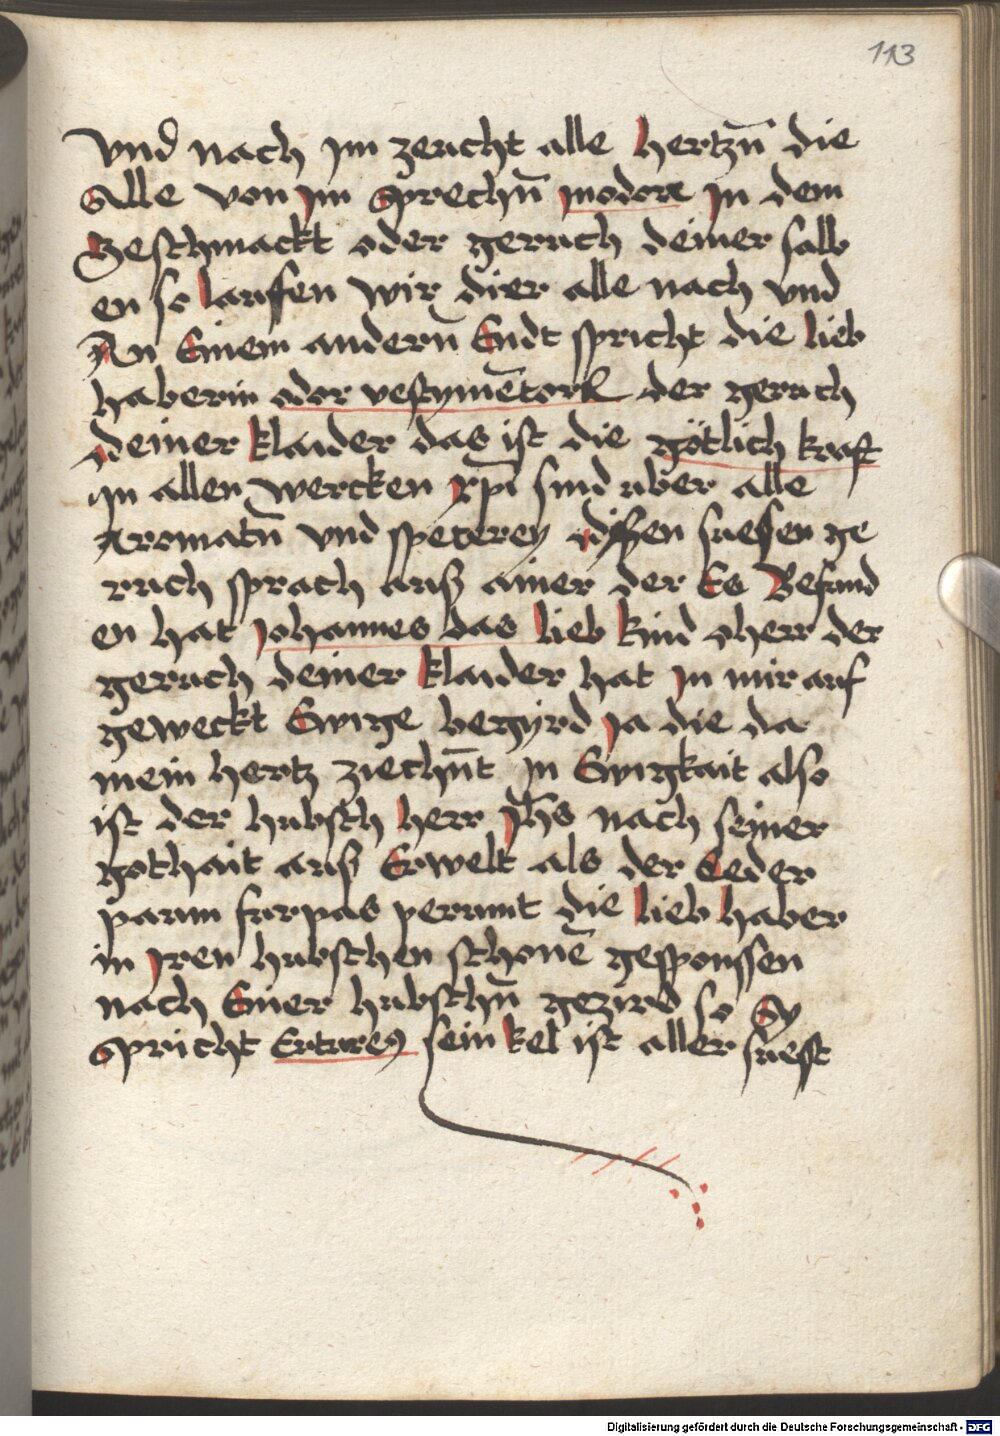 113
vnd nach im zeucht alle hertzn̄ die
Alle von im sprechn̄ inodore in dem
Geschmackt oder geruch deiner salb
en so lauffen wir dier alle nach vnd
An Einem andern̄ Endt spricht die lieb
haberin odor vestymēto℞ der geruch
deiner klaider das ist die götlich kraft
in allen wercken xp̄i sind vber alle
Aromatn̄ vnd specerey disen suesen ge
ruch sprach auß ainer der Es Befund
en hat johannes das lieb kind o herr der
geruch deiner klaider hat in mir auf
geweckt Ewige begyrd ja die da
mein hertz ziechn̄t in Ewigkait also
ist der hubsch herr jh̄s nach seiner
gothait auß Erwelt als der Ceder
paum furpas perumt die lieb haber
in jren hubschen schonē gesponssen
nach Einer hubschn̄ gezird so Sy
spricht sein kel ist aller suest
Digitalisierung gefördert durch die Deutsche Forschungsgemeinschaft - DFG